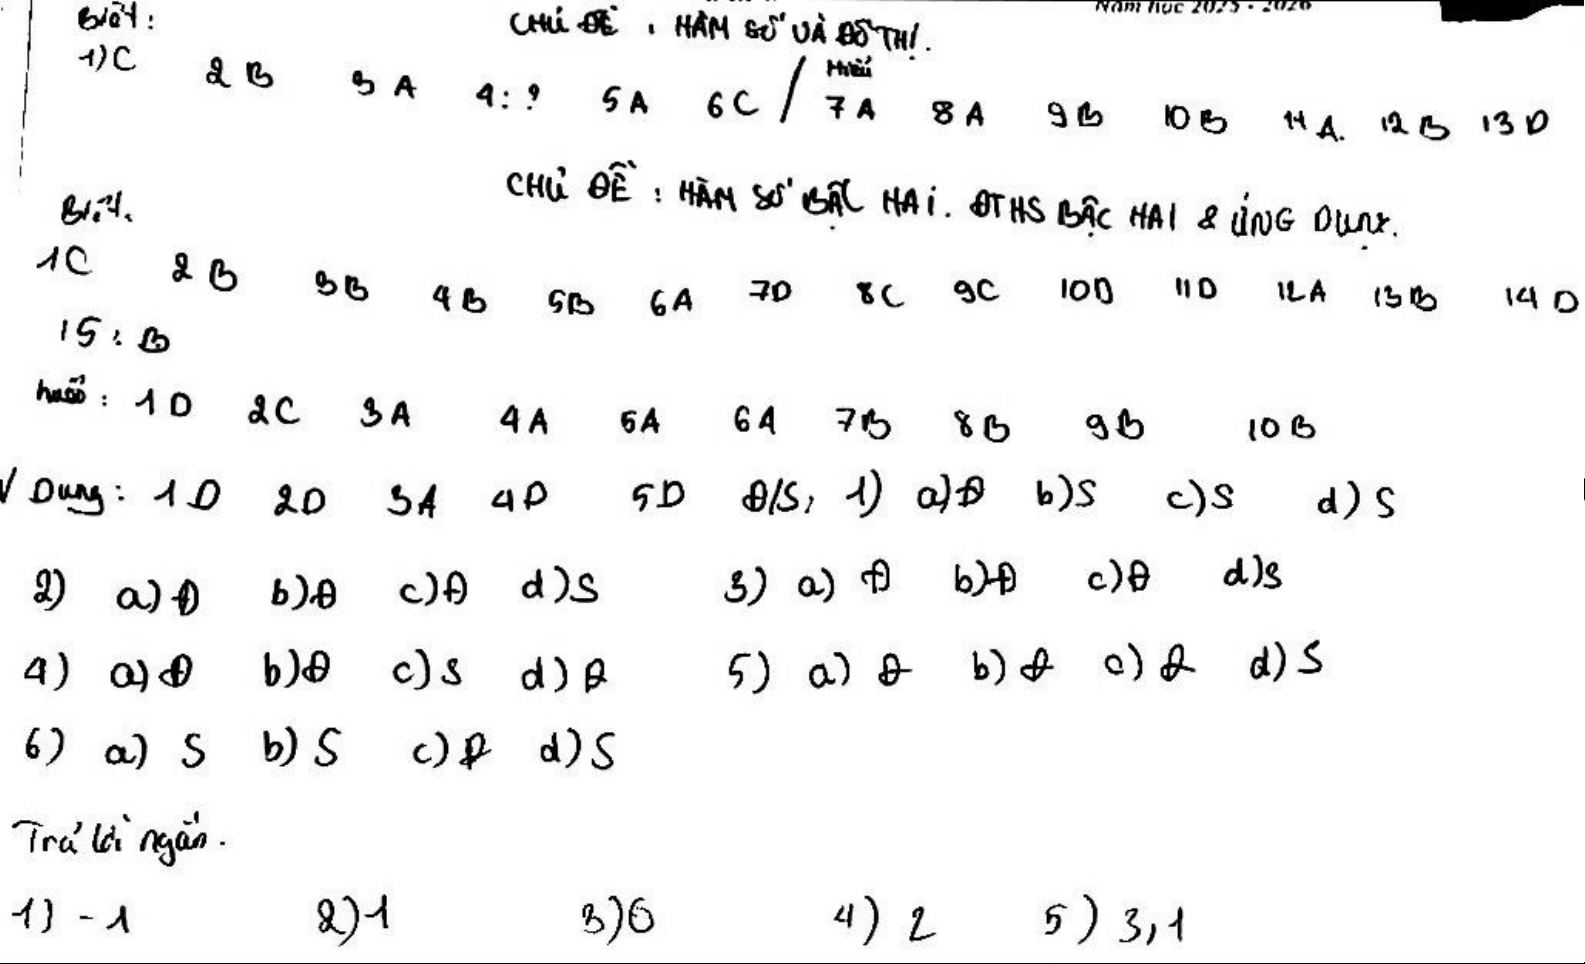 Năm học 2025 - 2026
Biết:
CHỦ ĐỀ : HÀM SỐ VÀ ĐỒ THỊ.
1) C 2 B 3 A 4: ? 5 A 6 C / Hiểu 7 A 8 A 9 B 10 B 11 A. 12 B 13 D
CHỦ ĐỀ : HÀM SỐ BẬC HAI. ĐTHS BẬC HAI & ỨNG DỤNG.
Biết.
1C 2 B 3B 4B 5B 6A 7D 8C 9C 10D 11D 12A 13B 14 D
15 : B
hiểu : 1 D 2C 3A 4A 5A 6A 7B 8B 9B 10B
V Dung : 1 D 2D 3A 4D 5D Đ/S, 1) a) Đ b) S c) S d) S
2) a) Đ b) Đ c) Đ d) S 3) a) Đ b) Đ c) Đ d) S
4) a) Đ b) Đ c) S d) Đ 5) a) Đ b) Đ c) Đ d) S
6) a) S b) S c) Đ d) S
Trả lời ngắn.
1) -1 2) 1 3) 6 4) 2 5) 3,1